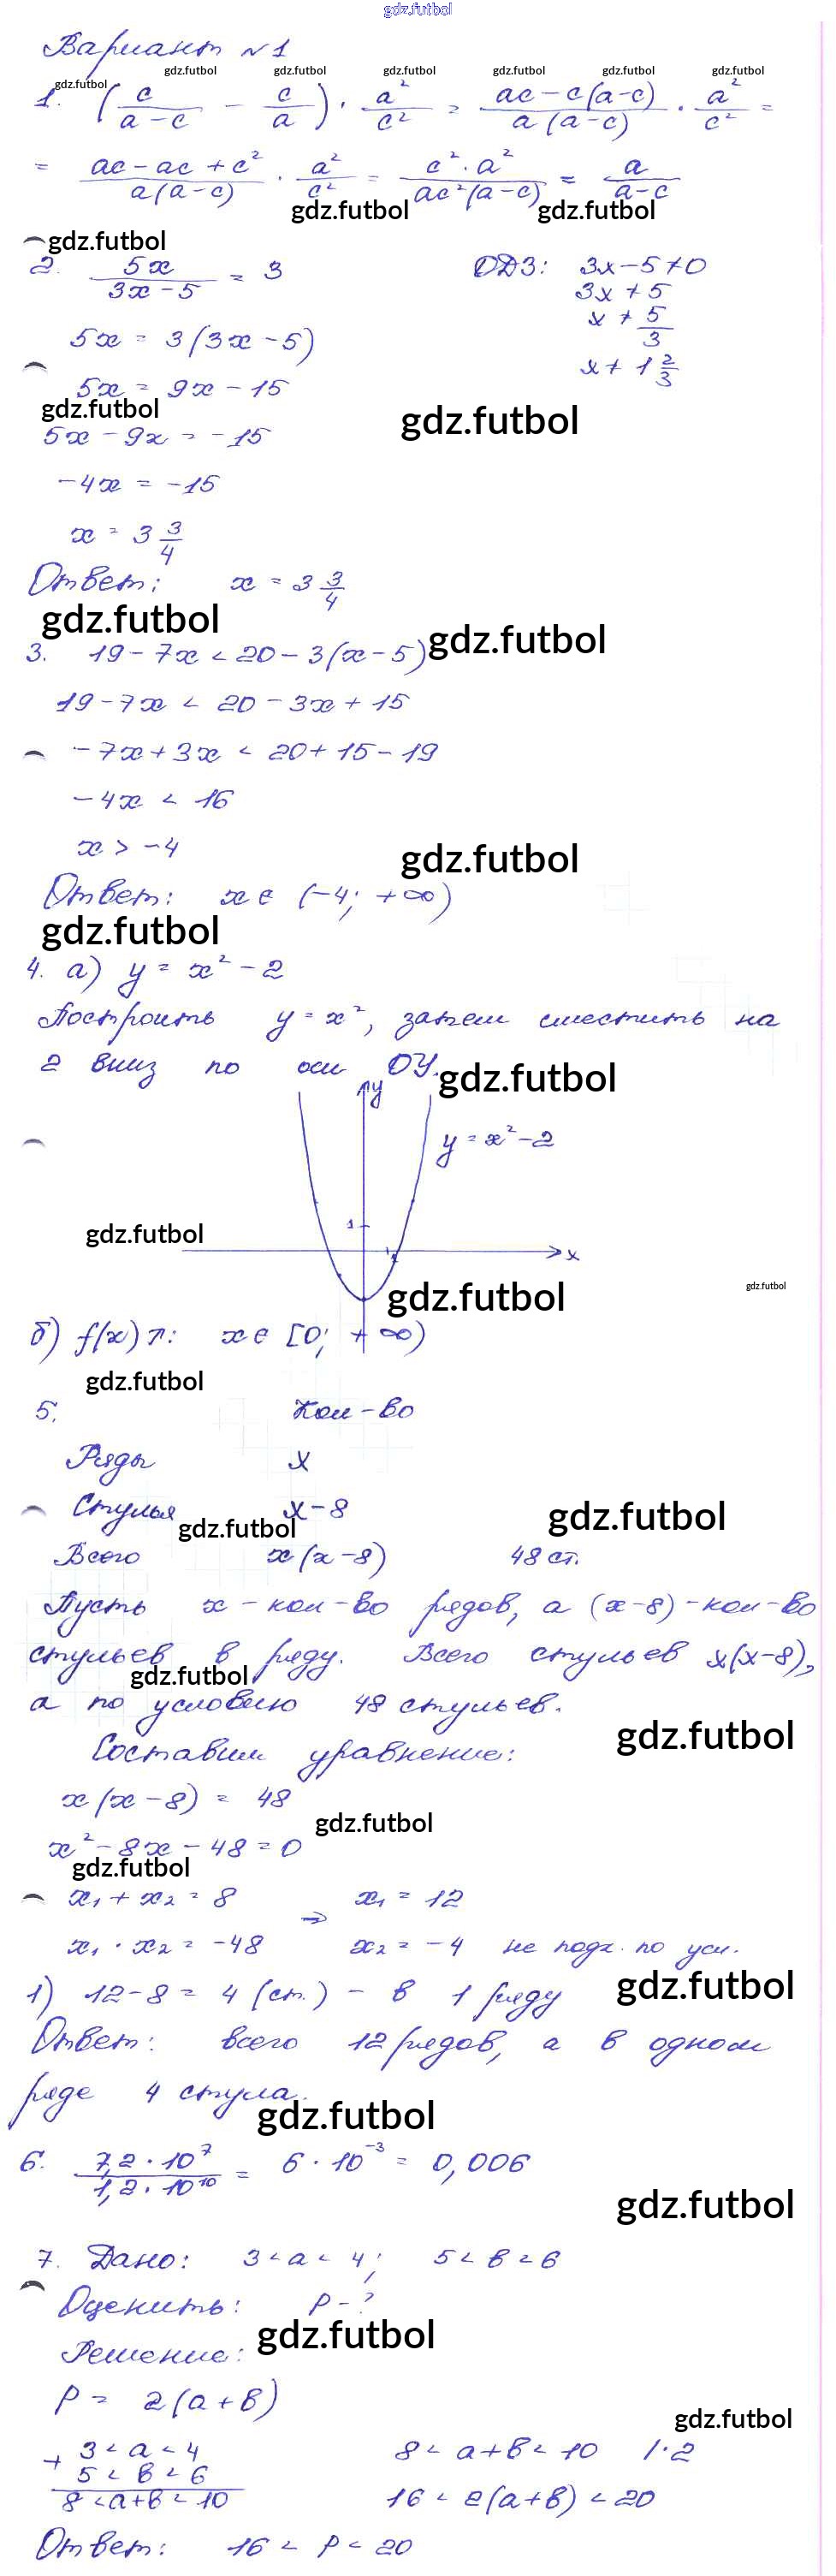 gdz.futbol
Вариант №1
gdz.futbol gdz.futbol gdz.futbol gdz.futbol gdz.futbol gdz.futbol gdz.futbol
1. (c/(a-c) - c/a) · a²/c² = (ac-c(a-c))/(a(a-c)) · a²/c² =
= (ac-ac+c²)/(a(a-c)) · a²/c² = (c²·a²)/(ac²(a-c)) = a/(a-c)
gdz.futbol gdz.futbol
gdz.futbol
2. 5x/(3x-5) = 3 ОДЗ: 3x-5≠0
3x ≠ 5
5x = 3(3x-5) x ≠ 5/3
5x = 9x - 15 x ≠ 1 2/3
gdz.futbol gdz.futbol
5x - 9x = -15
-4x = -15
x = 3 3/4
Ответ: x = 3 3/4
gdz.futbol gdz.futbol
3. 19-7x < 20-3(x-5)
19-7x < 20-3x+15
-7x+3x < 20+15-19
-4x < 16
x > -4
gdz.futbol
Ответ: x ∈ (-4; +∞)
gdz.futbol
4. а) y = x² - 2
Построить y = x², затем сместить на
2 вниз по оси OY.
gdz.futbol
y
y = x² - 2
gdz.futbol
1
1
x
gdz.futbol gdz.futbol
б) f(x)↗: x ∈ [0; +∞)
gdz.futbol
5. Кол-во
Ряды x
Стулья x-8
gdz.futbol gdz.futbol
Всего x(x-8) 48 ст.
Пусть x - кол-во рядов, а (x-8) - кол-во
стульев в ряду. Всего стульев x(x-8),
gdz.futbol
а по условию 48 стульев.
gdz.futbol
Составим уравнение:
x(x-8) = 48
gdz.futbol
x² - 8x - 48 = 0
gdz.futbol
x₁ + x₂ = 8 ⇒ x₁ = 12
x₁ · x₂ = -48 x₂ = -4 не подх. по усл.
1) 12-8 = 4 (ст.) - в 1 ряду
gdz.futbol
Ответ: всего 12 рядов, а в одном
ряде 4 стула.
gdz.futbol
6. (7,2·10⁷)/(1,2·10¹⁰) = 6·10⁻³ = 0,006
gdz.futbol
7. Дано: 3<a<4; 5<b<6
Оценить: P-?
gdz.futbol
Решение:
P = 2(a+b)
gdz.futbol
+ 3<a<4 8<a+b<10 |·2
5<b<6
8<a+b<10 16<2(a+b)<20
Ответ: 16 < P < 20